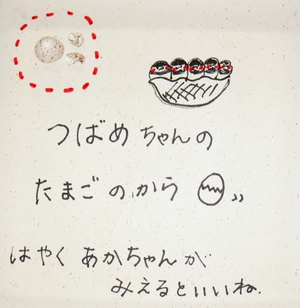 つばめちゃんの
たまごのから
はやく あかちゃんが
みえるといいね.